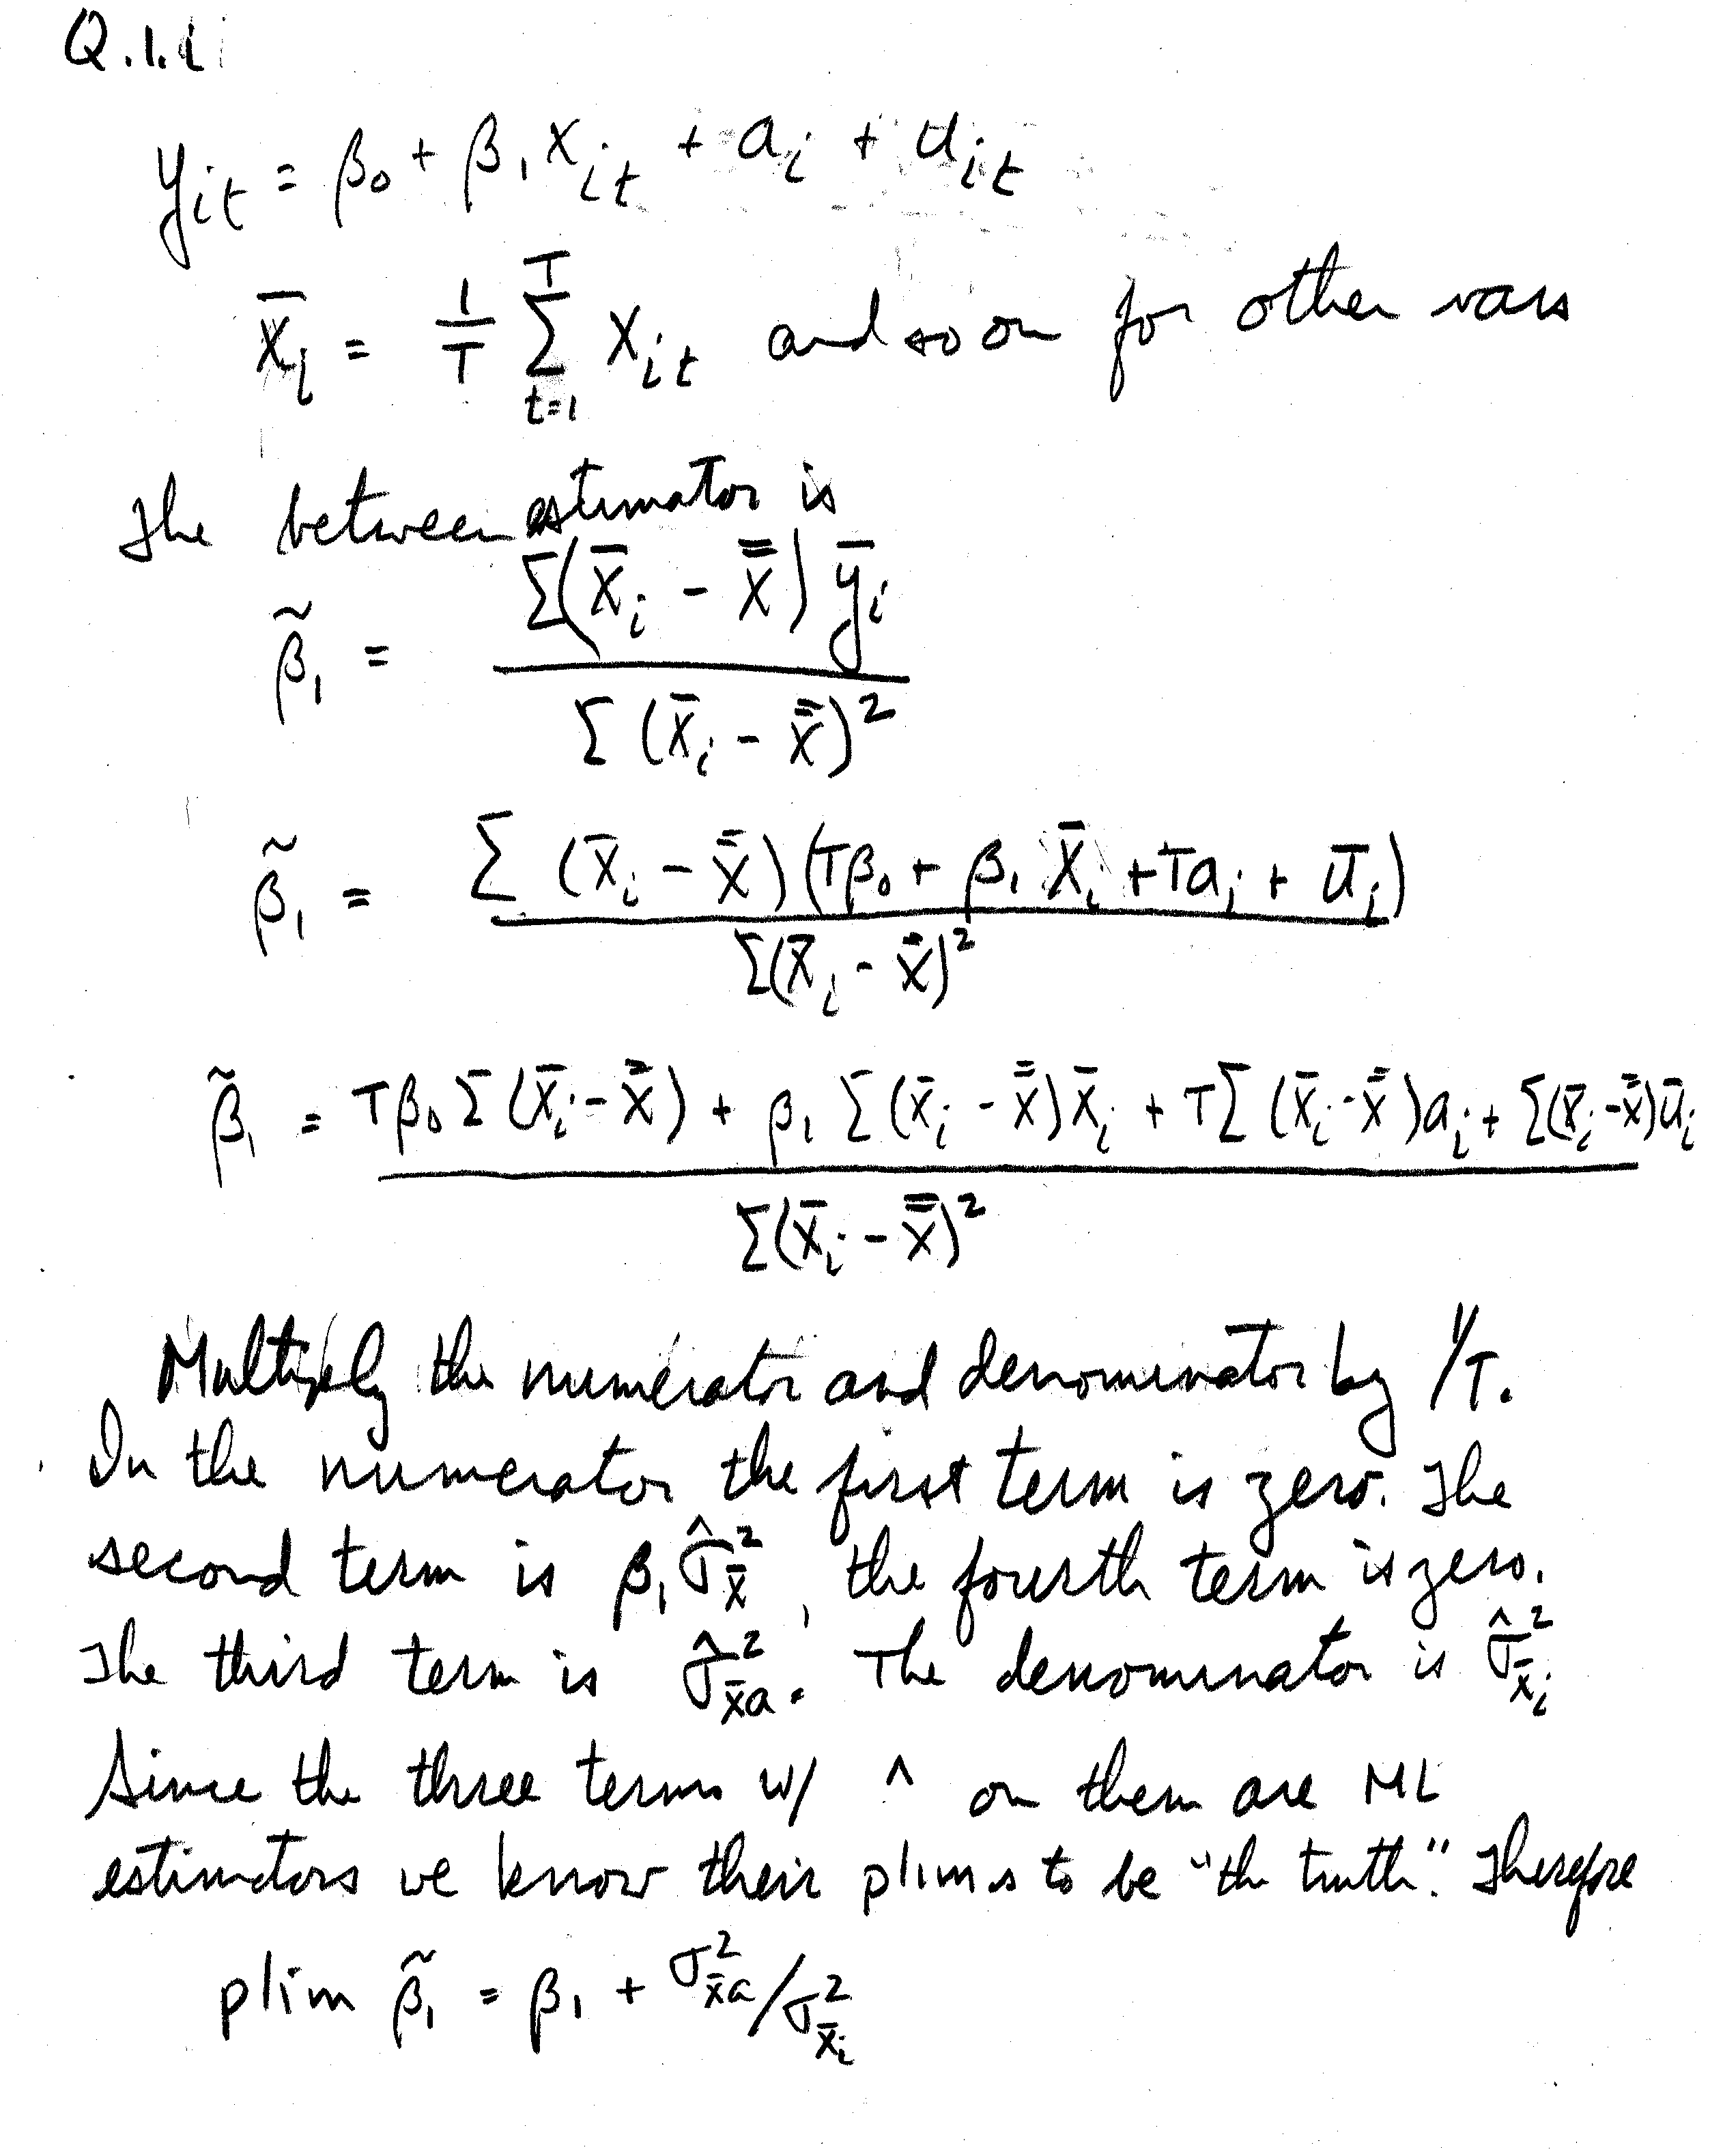 Q.1.i
y_it = β₀ + β₁ x_it + a_i + u_it
x̄_i = 1/T Σ_{t=1}^{T} x_it and so on for other vars
The between estimator is
β̃₁ = Σ(x̄_i - x̿) ȳ_i / Σ(x̄_i - x̿)²
β̃₁ = Σ(x̄_i - x̿)(Tβ₀ + β₁ x̄_i + Ta_i + ū_i) / Σ(x̄_i - x̿)²
β̃₁ = Tβ₀ Σ(x̄_i - x̿) + β₁ Σ(x̄_i - x̿)x̄_i + TΣ(x̄_i - x̿)a_i + Σ(x̄_i - x̿)ū_i / Σ(x̄_i - x̿)²
Multiply the numerator and denominator by 1/T.
In the numerator the first term is zero. The
second term is β₁ σ̂²_x̄, the fourth term is zero.
The third term is σ̂²_x̄a. The denominator is σ̂²_x̄i
Since the three terms w/ ^ on them are ML
estimators we know their plims to be "the truth". Therefore
plim β̃₁ = β₁ + σ²_x̄a / σ²_x̄i